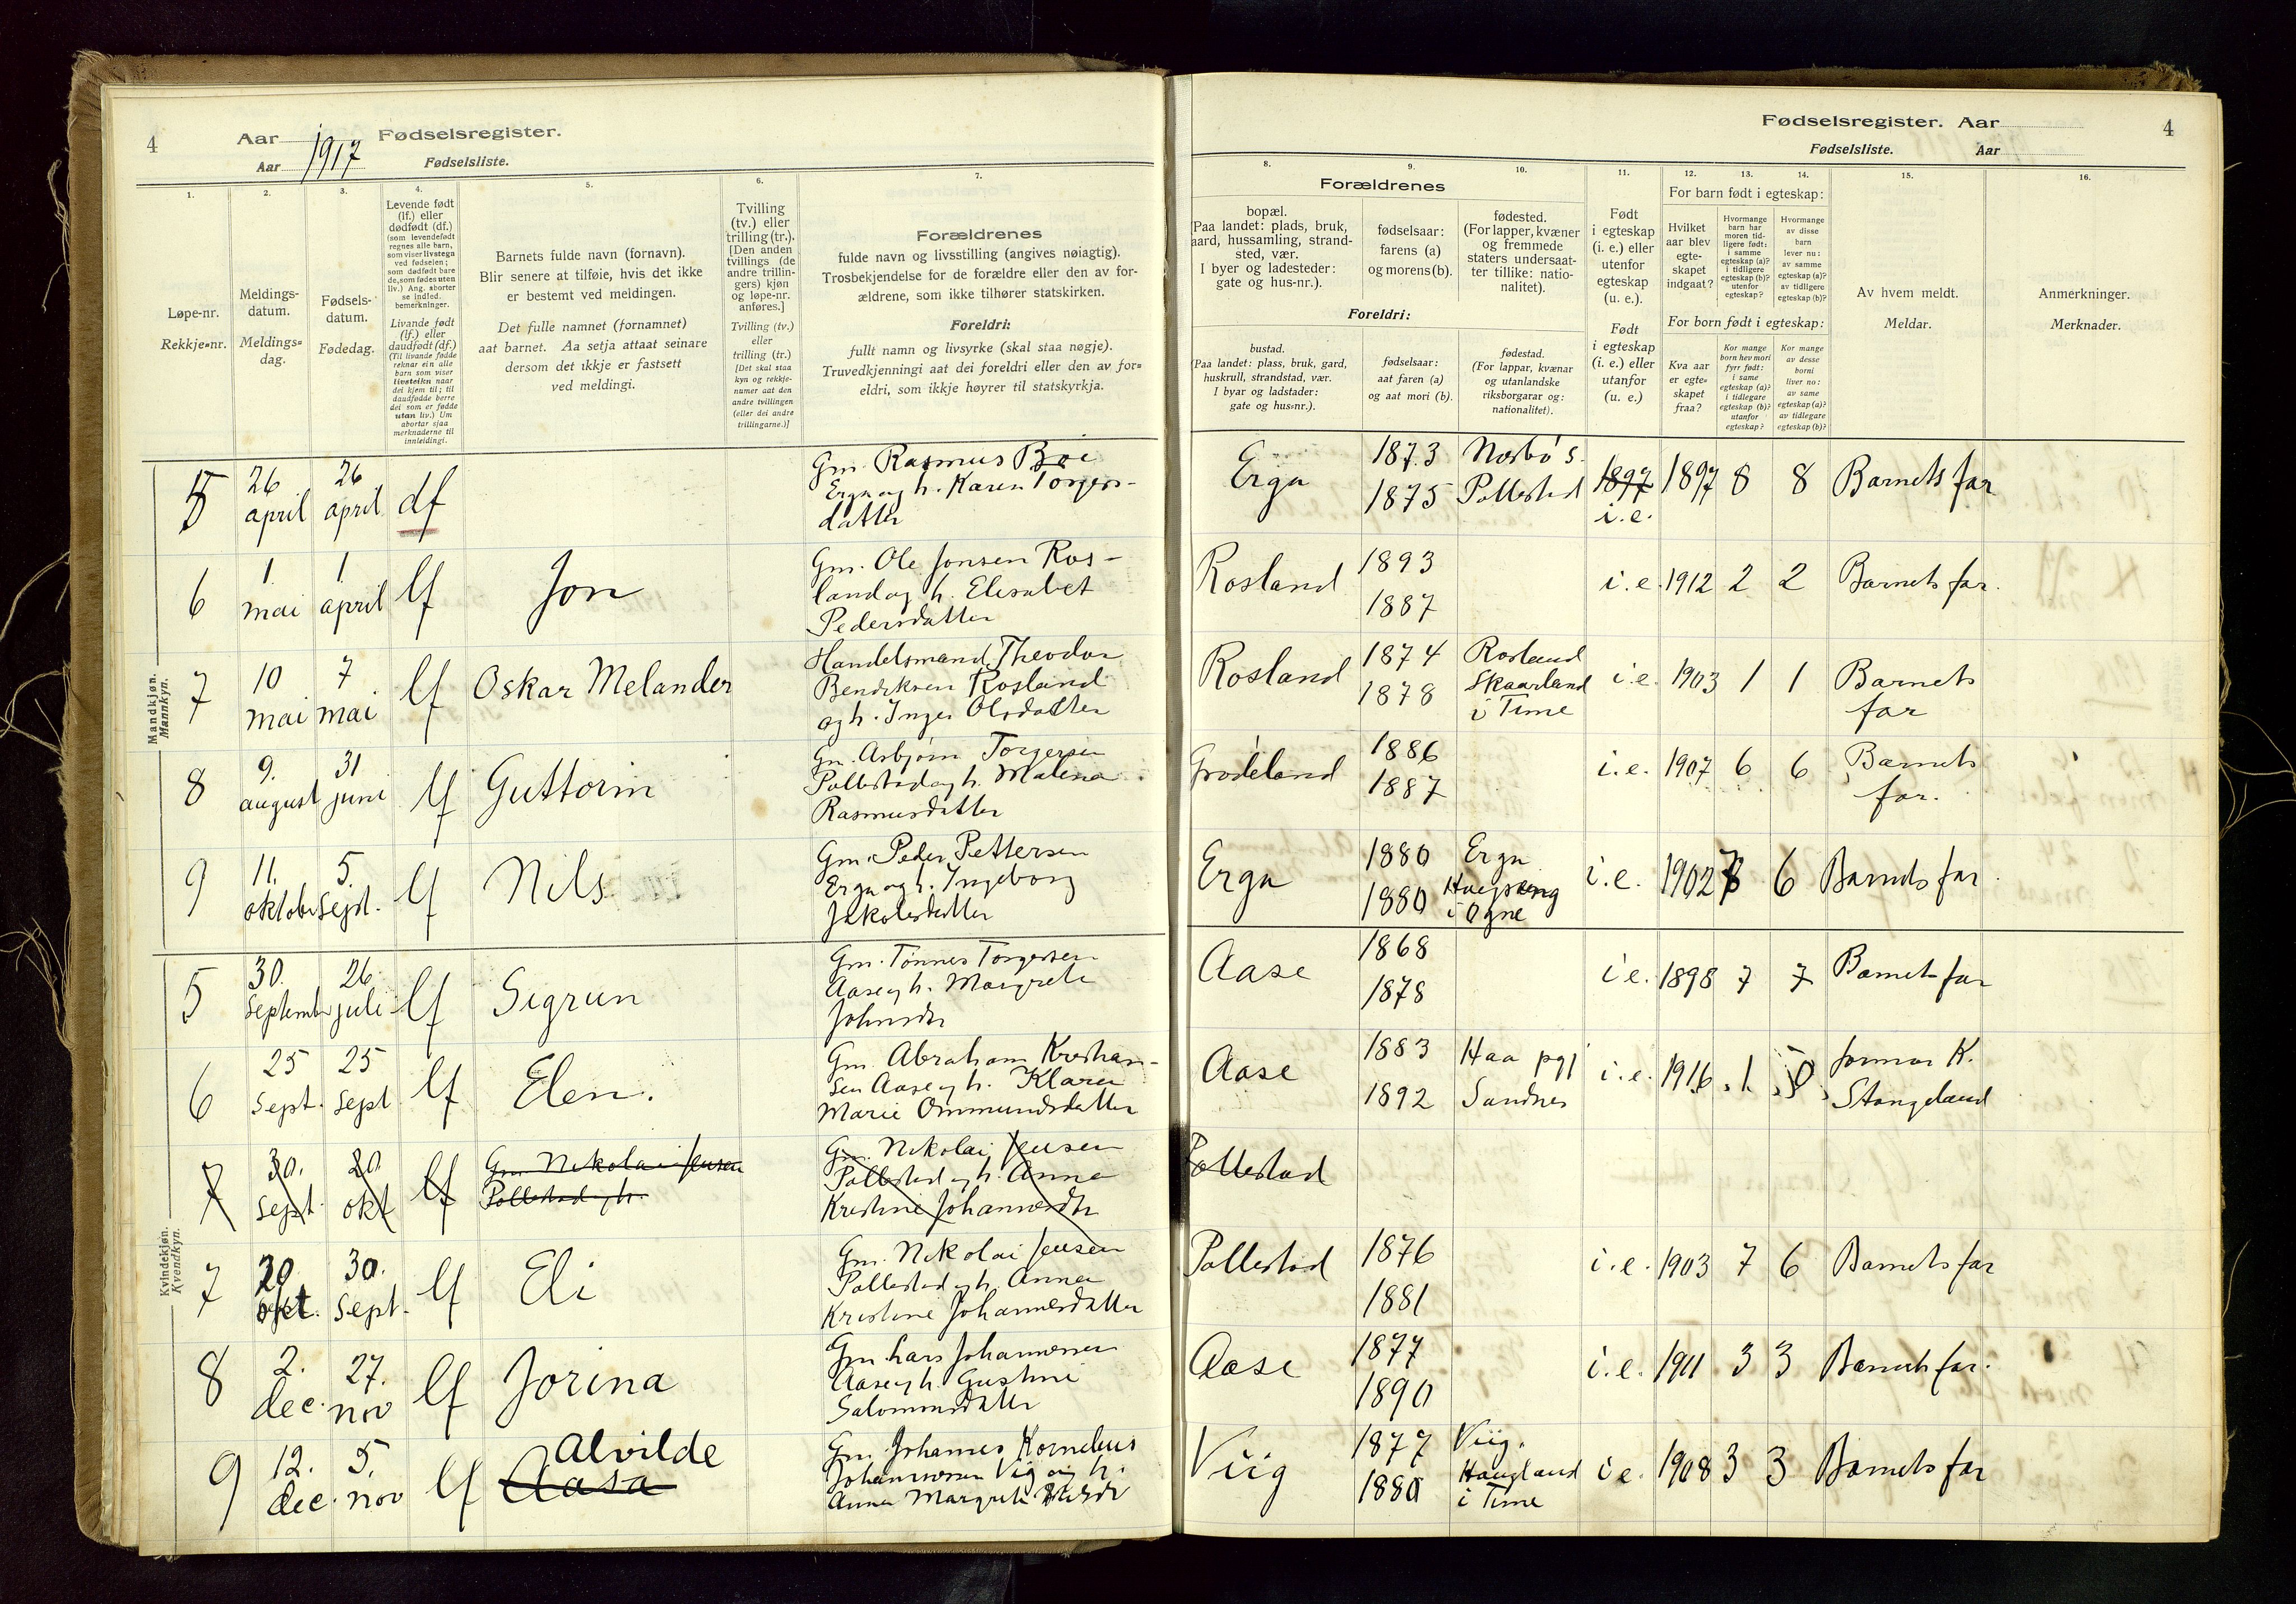 4
Aar 1917 Fødselsregister.
Aar Fødselsliste.
1.
2.
3.
4.
5.
6.
7.
Løpe-nr.
Rekkje-nr.
Meldings-
datum.
Meldings-
dag.
Fødsels-
datum.
Fødedag.
Levende født
(lf.) eller
dødfødt (df.)
(som levendefødt
regnes alle barn,
som viser livstegn
ved fødselen;
som dødfødt bare
de, som fødes uten
liv.) Ang. aborter
se indled.
bemerkninger.
Livande født
(lf.) eller
daudfødt (df.)
(Til livande fødde
reknar ein alle
barn som viser
livsteikn naar
dei kjem til; til
daudfødde berre
dei som er fødde
utan liv.) Um
abortar sjaa
merknaderne til
innleidingi.
Barnets fulde navn (fornavn).
Blir senere at tilføie, hvis det ikke
er bestemt ved meldingen.
Det fulle namnet (fornamnet)
aat barnet. Aa setja attaat seinare
dersom det ikkje er fastsett
ved meldingi.
Tvilling
(tv.) eller
trilling (tr.).
[Den anden
tvillings (de
andre trillin-
gers) kjøn
og løpe-nr.
anføres.]
Tvilling (tv.)
eller
trilling (tr.)
[Det skal staa
kyn og rekkje-
numer aat den
andre tvillingen
(eller dei andre
trillingarne.)]
Forældrenes
fulde navn og livsstilling (angives nøiagtig).
Trosbekjendelse for de forældre eller den av for-
ældrene, som ikke tilhører statskirken.
Foreldri:
fullt namn og livsyrke (skal staa nøgje).
Truvedkjenningi aat dei foreldri eller den av for-
eldri, som ikkje høyrer til statskyrkja.
Mandkjøn.
Mannkyn.
5
26
april
26
april
df
Gm. Rasmus Bøi
Erga og h. Karen Torgers-
datter
6
1
mai
1
april
lf
Jon
Gm. Ole Jonsen Ros-
land og h. Elisabet
Pedersdatter
7
10
mai
7
mai
lf
Oskar Melander
Handelsmand Theodor
Bendiksen Rosland
og h. Inger Olsdatter
8
9.
august
31
juni
lf
Guttorm
Gm. Asbjørn Torgersen
Pollestad og h. Malena
Rasmusdatter
9
11.
oktober
5.
Sept.
lf
Nils
Gm. Peder Pettersen
Erga og h. Ingeborg
Jakobsdatter
Kvindekjøn.
Kvendkyn.
5
30.
September
26.
juli
lf
Sigrun
Gm. Tønnes Torgersen
Aase og h. Margrete
Johnsdtr
6
25
Sept.
25
Sept
lf
Elen.
Gm. Abraham Kristian-
sen Aase og h. Klara
Marie Ommundsdatter
7
30.
Sept.
20.
okt
lf
Gm. Nikolai Jensen
Pollestad og h.
Gm. Nikolai Jensen
Pollestad og h. Anna
Kristine Johannesdtr
7
20
okt.
30.
Sept.
lf
Eli
Gm. Nikolai Jensen
Pollestad og h. Anna
Kristine Johannesdatter
8
2.
dec.
27.
nov
lf
Jorina
Gm. Lars Johannesen
Aase og h. Gustine
Salomonsdatter
9
12.
dec.
5.
nov
lf
Alvilde
Aasa
Gm. Johannes Kornelius
Johannesen Viig og h.
Anna Margrete
Fødselsregister. Aar
4
Fødselsliste. Aar
8.
9.
10.
11.
12.
13.
14.
15.
16.
Forældrenes
bopæl.
(Paa landet: plads, bruk,
gaard, hussamling, strand-
sted, vær.
I byer og ladesteder:
gate og hus-nr.).
fødselsaar:
farens (a)
og morens (b).
fødested.
(For lapper, kvæner
og fremmede
staters undersaat-
ter tillike: natio-
nalitet).
Foreldri:
bustad.
(Paa landet: plass, bruk, gard,
huskrull, strandstad, vær.
I byar og ladstader:
gate og hus-nr.).
fødselsaar:
aat faren (a)
og aat mori (b).
fødestad.
(For lappar, kvænar
og utanlandske
riksborgarar og:
nationalitet).
Født
i egteskap
(i. e.) eller
utenfor
egteskap
(u. e.).
Født
i egteskap
(i. e.) eller
utanfor
(u. e.)
For barn født i egteskap:
Hvilket
aar blev
egte-
skapet
indgaat?
Hvormange
barn har
moren tid-
ligere født:
i samme
egteskap (a)?
i tidligere
egteskap (b)?
utenfor
egteskap?
Hvormange
av disse
barn
lever nu:
av samme
egteskap (a)?
av tidligere
egteskap (b)?
For born født i egteskap:
Kva aar
er egte-
skapet
fraa?
Kor mange
born hev mori
fyrr født:
i same
egteskap (a)?
i tidlegare
egteskap (b)?
utanfor
egteskap?
Kor mange
av desse
borni
liver no:
av same
egteskap (a)?
av tidlegare
egteskap (b)?
Av hvem meldt.
Meldar.
Anmerkninger.
Merknader.
Erga
1873
1875
Nærbø s.
Pollestad
1897
i.e.
1897
8
8
Barnets far
Rosland
1893
1887
i.e.
1912
2
2
Barnets far.
Rosland
1874
1878
Rosland
Skaarland
i Time
i.e.
1903
1
1
Barnets
far
Grødeland
1886
1887
i.e.
1907
6
6
Barnets
far.
Erga
1880
1880
Erga
i Ogne
i.e.
1902
6
Barnets far
Aase
1868
1878
i.e.
1898
7
7
Barnets far
Aase
1883
1892
Haa pgj
Sandnes
i.e.
1916
1
0
Jormor K.
Stangeland
Pollestad
Pollestad
1876
1881
i.e.
1903
7
6
Barnets far
Aase
1877
1890
i.e.
1911
3
3
Barnets far.
Viig
1877
1880
Viig.
Haugland
i Time
i e.
1908
3
3
Barnets far